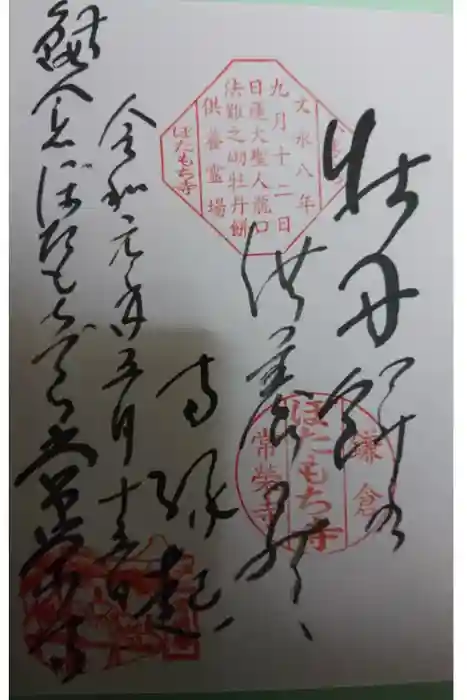 牡丹餅
供養
寺縁起
令和元年五月十
鎌倉ぼたもち
文永八年
九月十二日
日蓮大聖人龍口
法難之砌牡丹餅
供養霊場
ぼたもち寺
鎌倉
ぼたもち寺
常榮寺